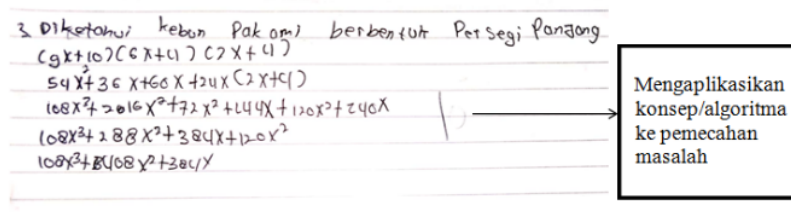 3. Diketahui kebun Pak omi berbentuk Persegi Panjang
(9x+10)(6x+4)(2x+4)
54x²+36x+60x+24x(2x+4)
108x³+2016x²+72x²+144x+120x²+240x
108x³+288x²+384x+120x²
108x³+8408x²+384x
Mengaplikasikan
konsep/algoritma
ke pemecahan
masalah